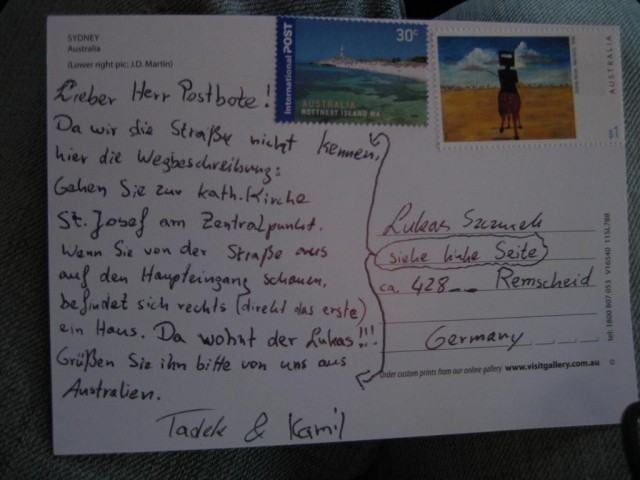 SYDNEY
Australia
(Lower right pic: J.D. Martin)
Lieber Herr Postbote!
Da wir die Straße nicht kennen,
hier die Wegbeschreibung:
Gehen Sie zur kath. Kirche
St. Josef am Zentralpunkt.
Wenn Sie von der Straße aus
auf den Haupteingang schauen,
befindet sich rechts (direkt das erste)
ein Haus. Da wohnt der Lukas!!!
Grüßen Sie ihn bitte von uns aus
Australien.
Tadek & Kamil
International POST
30c
AUSTRALIA
ROTTNEST ISLAND WA
AUSTRALIA
$1
Lukas
siehe linke Seite
ca. 428__ Remscheid
Germany
Order custom prints from our online gallery www.visitgallery.com.au
tel: 1800 807 053 V16540 11SL788